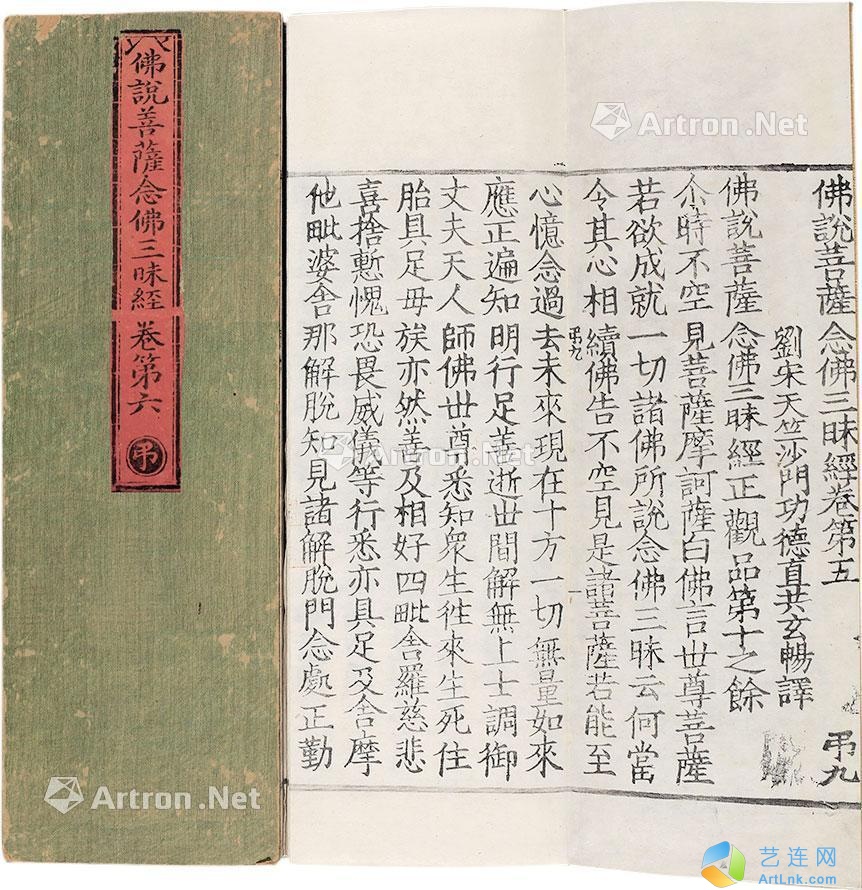 佛說菩薩念佛三昧經 卷第六 弔
佛說菩薩念佛三昧經卷第五 弔九
劉宋天竺沙門功德直共玄暢譯
佛說菩薩念佛三昧經正觀品第十之餘
尒時不空見菩薩摩訶薩白佛言世尊菩薩
若欲成就一切諸佛所說念佛三昧云何當
令其心相續佛告不空見是諸菩薩若能至
弔九
心憶念過去未來現在十方一切無量如來
應正遍知明行足善逝世間解無上士調御
丈夫天人師佛世尊悉知眾生徃來生死住
胎具足毋族亦然善及相好四毗舍羅慈悲
喜捨慙愧恐畏威儀等行悉亦具足及舍摩
他毗婆舍那解脫知見諸解脫門念處正勤
Artron.Net
Artron.Net
Artron.Net
Artron.Net
艺连网
ArtLnk.com